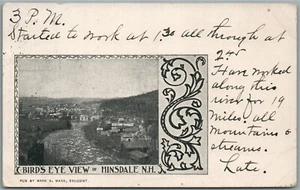 3 P.M.
Started to work at 1.30 all through at
2.45
Have worked
along this
river for 19
miles, all
Mountains &
streams.
Late.
BIRDS EYE VIEW OF HINSDALE N.H.
PUB BY MARK A. WARD, DRUGGIST.